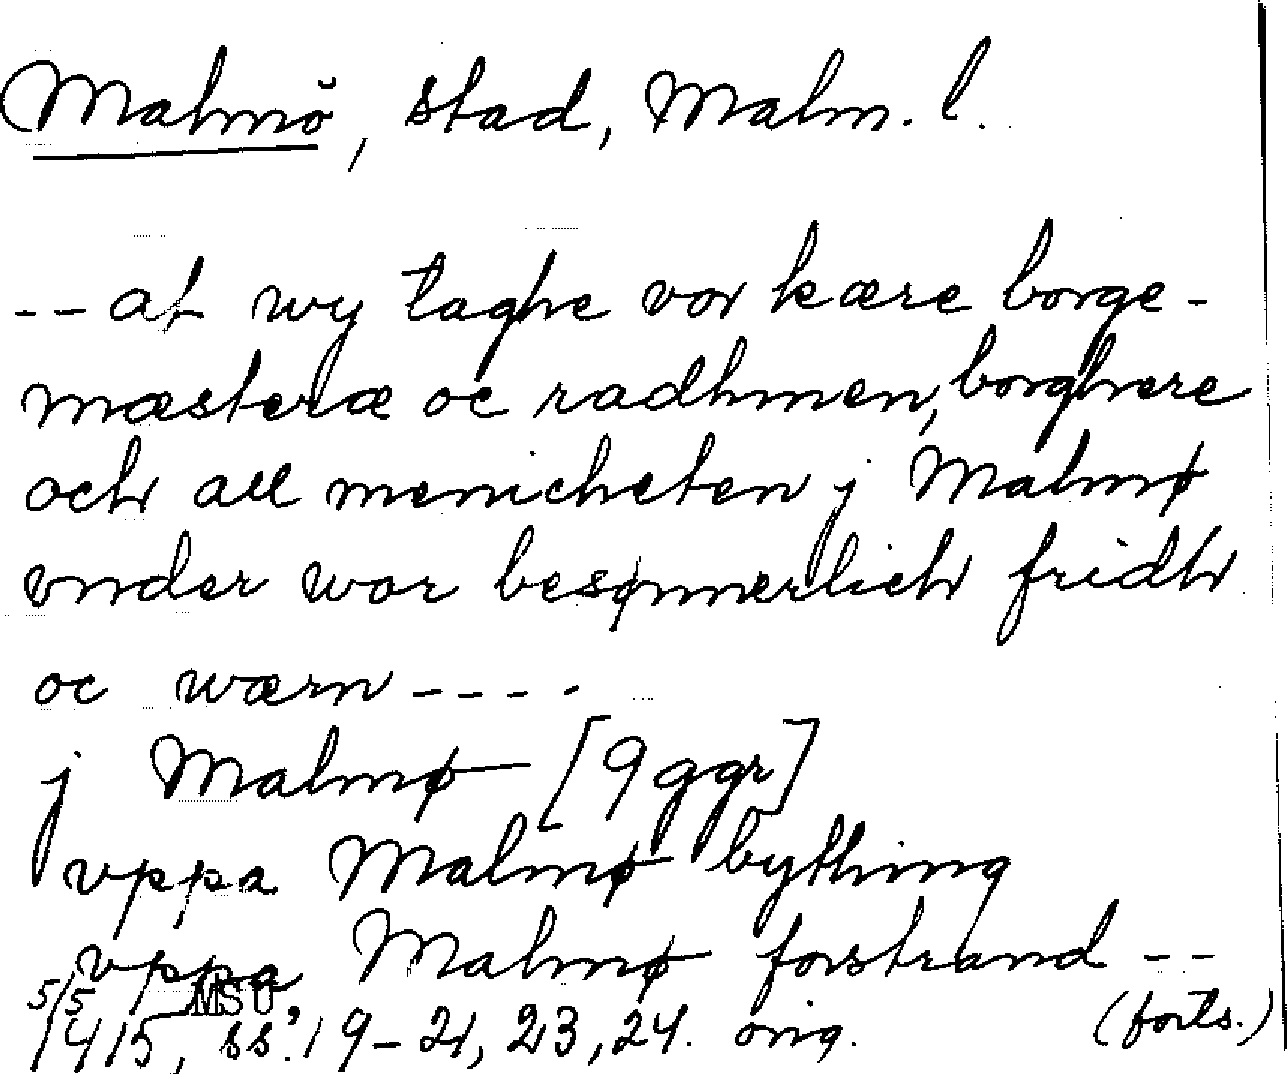 Malmö, stad, Malm. l.
-- at wy taghe vor kære borge-
mæsteræ oc radhmen, borghere
och all menicheten j Malmø
vnder wor besønnerlich fridh
oc wærn ----
j Malmø [9 ggr]
vppa Malmø bything
vppa Malmø forstrand --
5/5 MSU
1415, ss. 19-21, 23, 24. orig. (forts.)